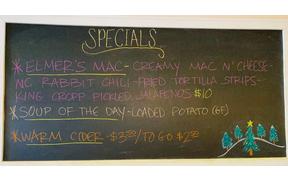 SPECIALS
*ELMER'S MAC-CREAMY MAC N' CHEESE-
NC RABBIT CHILI-FRIED TORTILLA STRIPS-
KING CROPP PICKLED JALAPENOS $10
*SOUP OF THE DAY-LOADED POTATO (GF)
*WARM CIDER-$3.50/TO GO $2.50